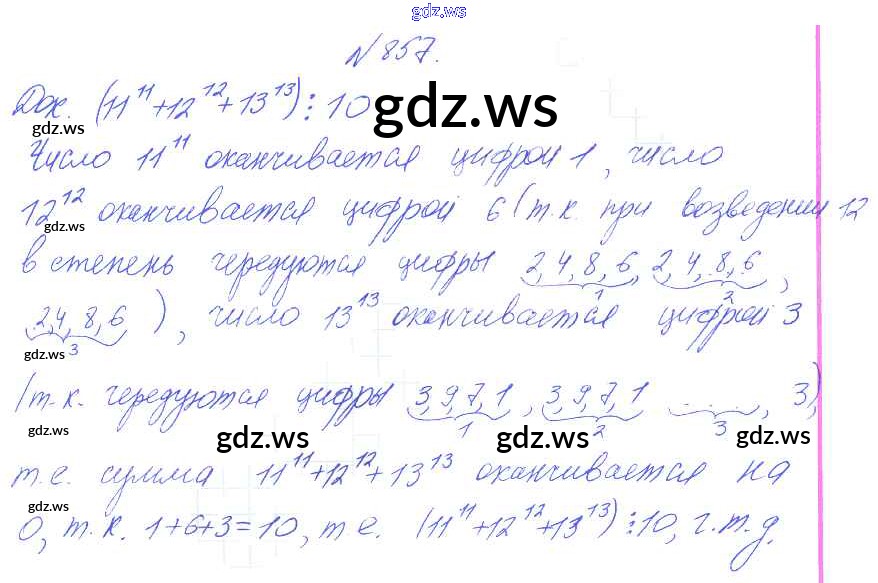 gdz.ws
N 857.
Док. (11^11+12^12+13^13)⋮10
gdz.ws
gdz.ws
Число 11^11 оканчивается цифрой 1, число
12^12 оканчивается цифрой 6 (т.к. при возведении 12
gdz.ws
в степень чередуются цифры 2,4,8,6, 2,4,8,6,
1 2
2,4,8,6), число 13^13 оканчивается цифрой 3
3
gdz.ws
(т.к. чередуются цифры 3,9,7,1, 3,9,7,1 ....., 3)
1 2 3
gdz.ws gdz.ws gdz.ws gdz.ws
т.е. сумма 11^11+12^12+13^13 оканчивается на
gdz.ws
0, т.к. 1+6+3=10, т.е. (11^11+12^12+13^13)⋮10, ч.т.д.